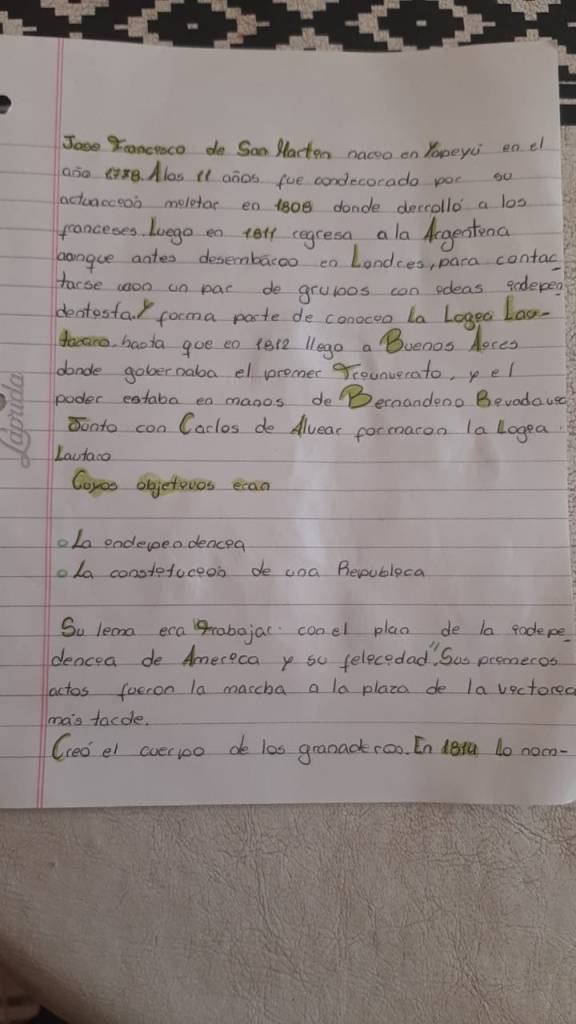 Jose Francesco de San Marten naceo en Yapeyú en el
año 1778. A los 11 años fue condecorado por su
actuacceoń meletar en 1808 donde derrolló a los
franceses. Luego en 1811 regresa a la Argentena
aonque antes desembarcoo en Londres, para contac
tarse con un par de grupos con edeas endepen
dentesta. Y forma parte de conoceo La Logea Lau-
taaro. hasta que en 1812 llego a Buenos Aeres
donde gobernaba el premer Treunverato, y el
poder estaba en manos de Bernandeno Revadavea
Junto con Carlos de Alvear formaron la Logea
Lautaro
Cuyos objetevos eran
La endependencea
La constetuceoń de una Republeca
Su lema era "trabajar con el plan de la endepe_
dencea de Amereca y su felecedad". Sus premeros
actos fueron la marcha a la plaza de la vectorea
más tarde.
Creó el cuerpo de los granaderos. En 1814 lo nom-
Laprida